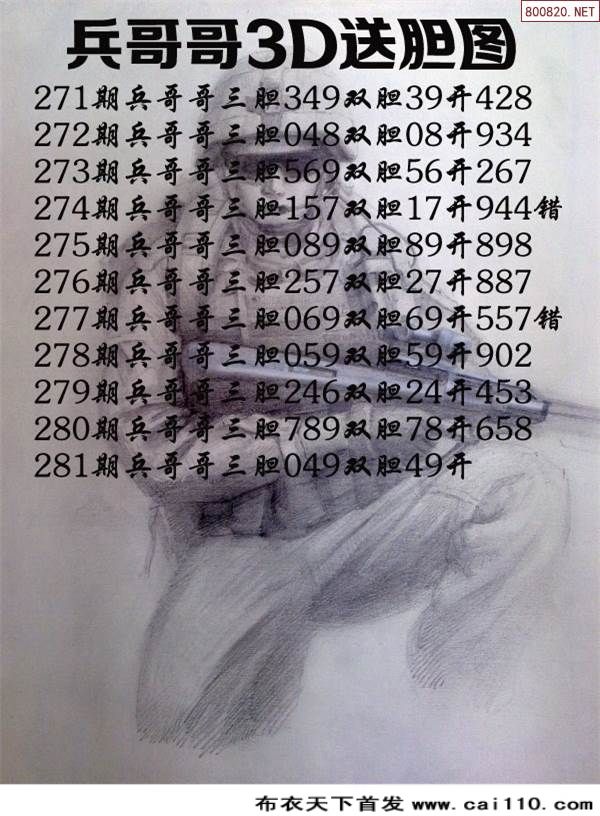 800820.NET
兵哥哥3D送胆图
271期兵哥哥三胆349双胆39开428
272期兵哥哥三胆048双胆08开934
273期兵哥哥三胆569双胆56开267
274期兵哥哥三胆157双胆17开944错
275期兵哥哥三胆089双胆89开898
276期兵哥哥三胆257双胆27开887
277期兵哥哥三胆069双胆69开557错
278期兵哥哥三胆059双胆59开902
279期兵哥哥三胆246双胆24开453
280期兵哥哥三胆789双胆78开658
281期兵哥哥三胆049双胆49开
布衣天下首发 www.cai110.com